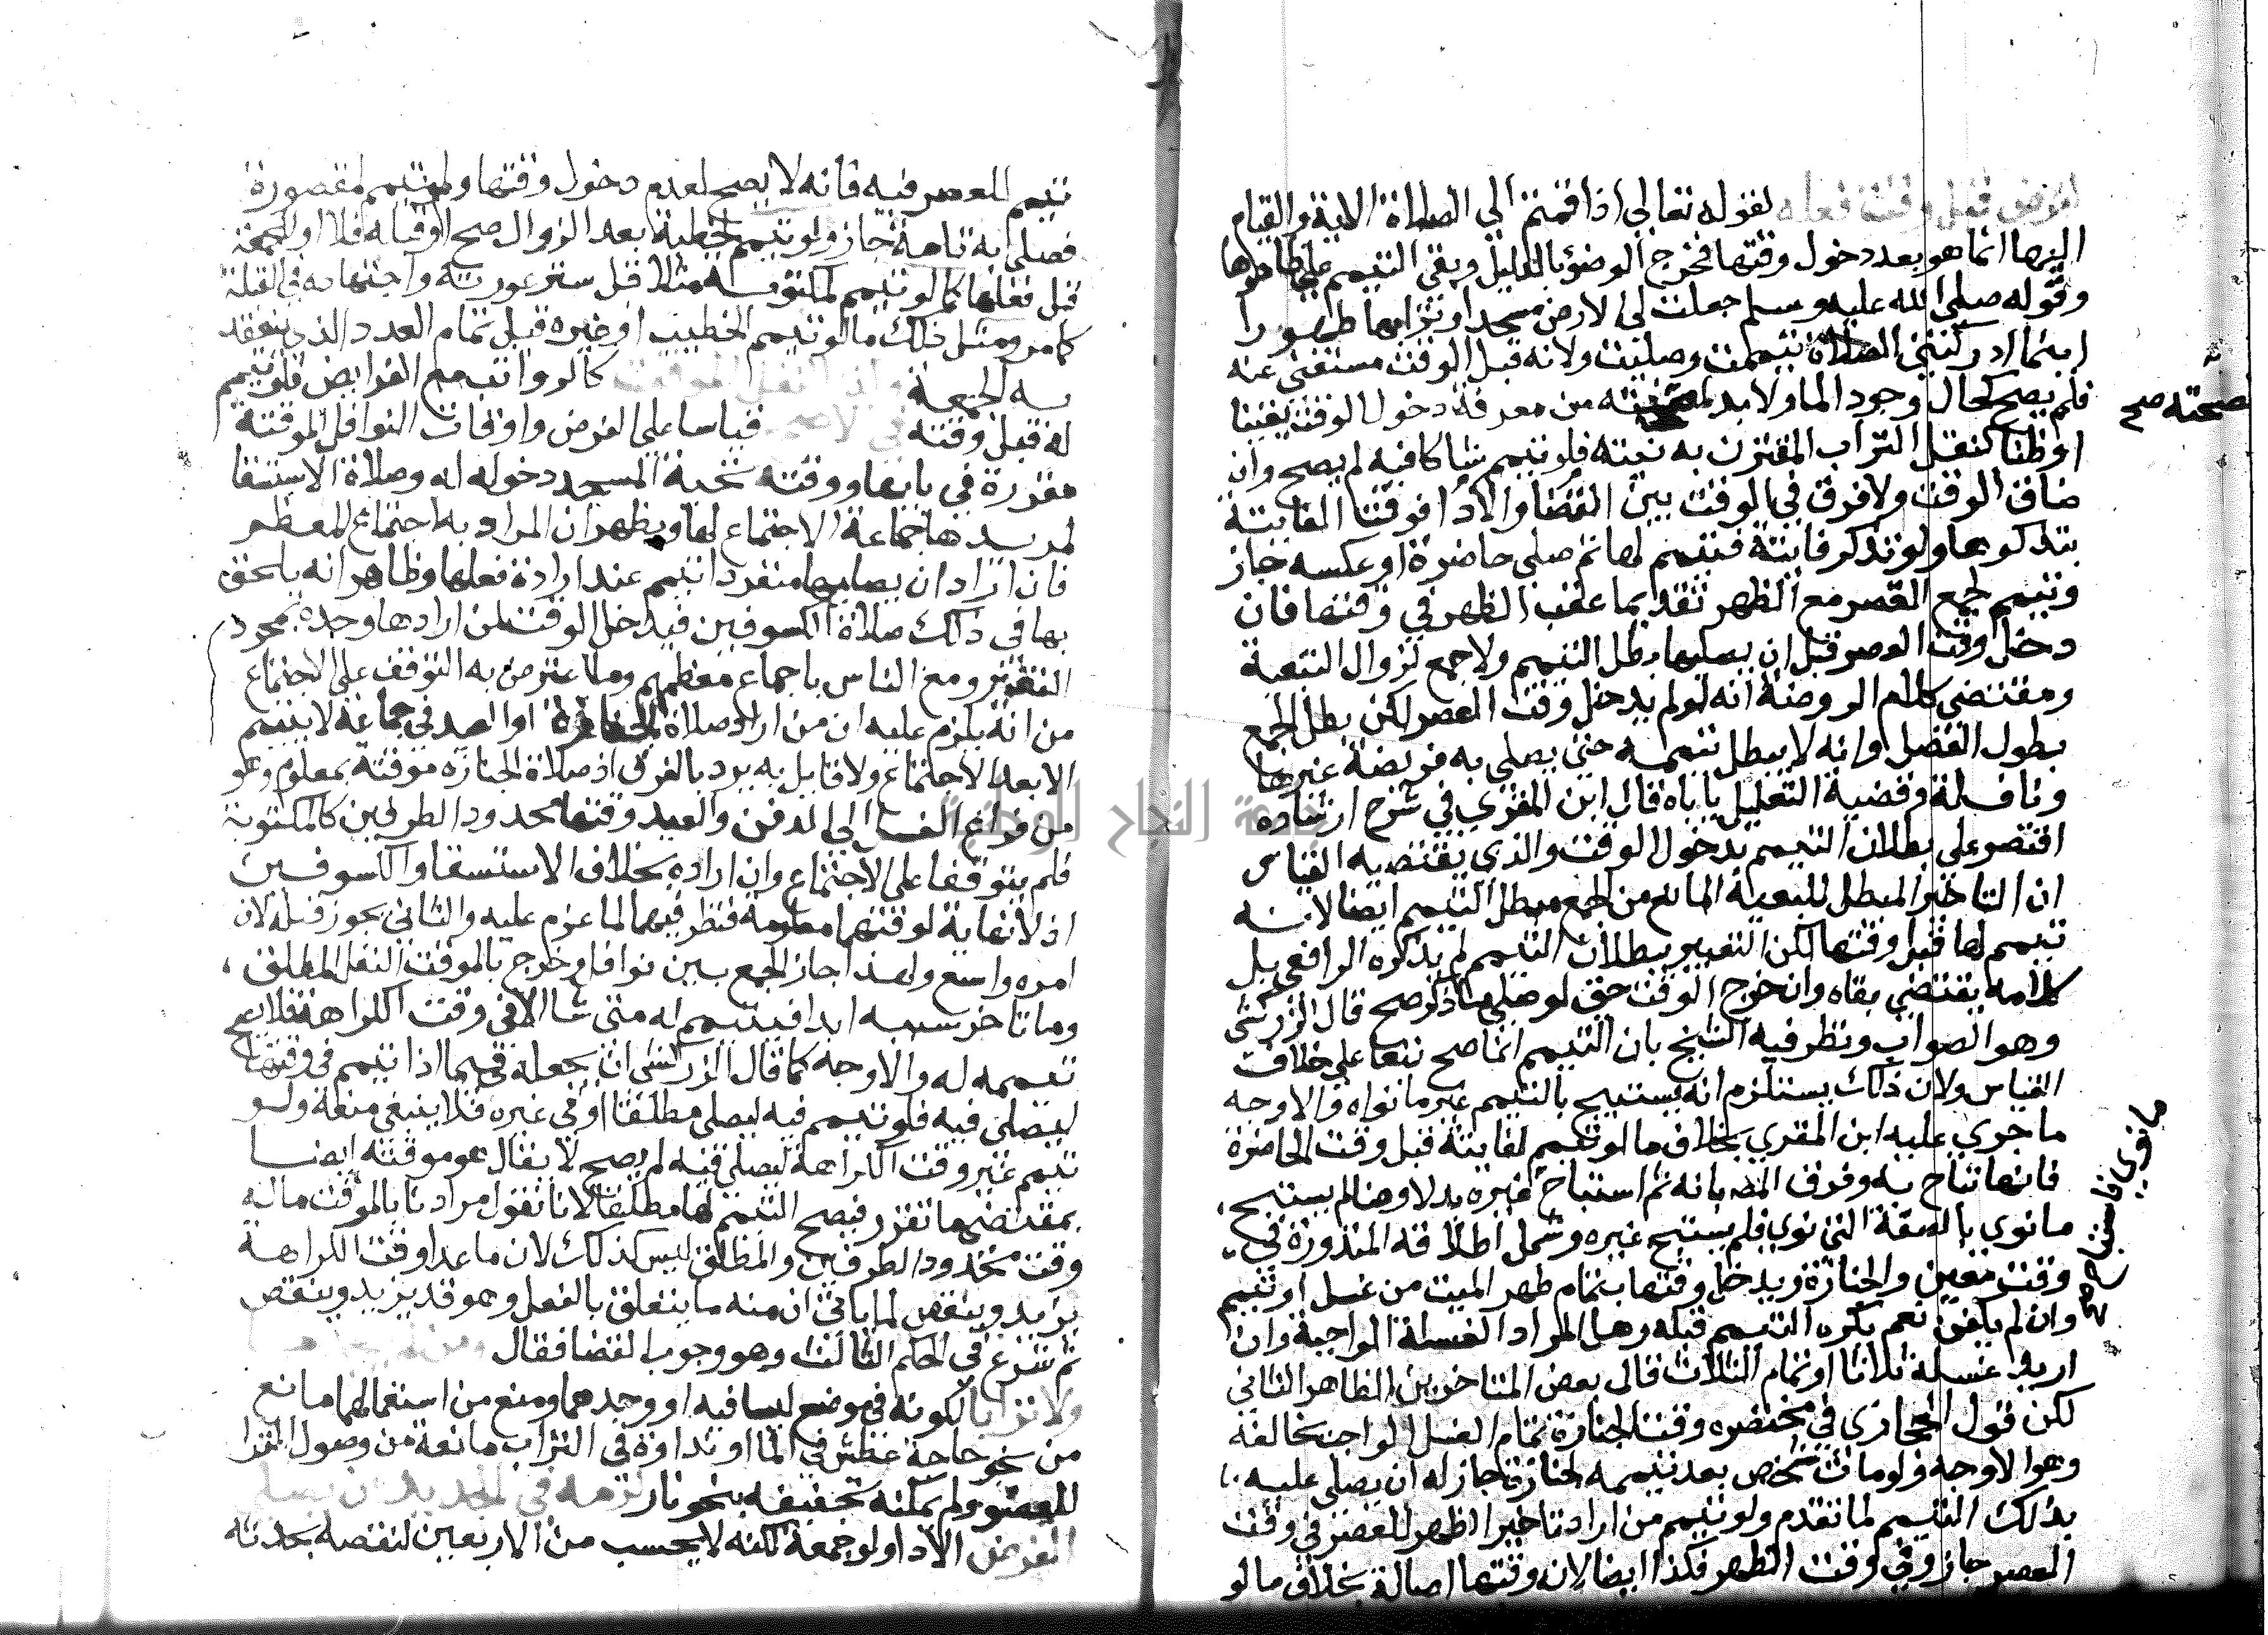 لفرض قبل وقت فعله لقوله تعالى اذا قمتم الى الصلاة الاية والقيام
اليها انما هو بعد دخول وقتها فخرج الوضؤ بالدليل وبقى التيمم على ظاهرها
وقوله صلى الله عليه وسلم جعلت لى الارض مسجدا وترابها طهورا
اينما ادركتنى الصلاة تيممت وصليت ولانه قبل الوقت مستغنى عنه
فلم يصح كحال وجود الما ولا بد لصحته من معرفة دخول الوقت يقينا
صحته صح
اوظنا كنقل التراب المقترن به نيته فلو تيمم شاكا فيه لم يصح وان
ضاق الوقت ولا فرق في الوقت بين القضا والادا فوقت الفايتة
بتذكرها ولو تذكر فايتة فتيمم لها ثم صلى حاضرة او عكسه جاز
وتيمم لجمع العصر مع الظهر تقديما عقب الظهر في وقتها فان
دخل وقت العصر قبل ان يصليها بطل التيمم ولا جمع لزوال التبعية
ومقتضى كلام الروضة انه لو لم يدخل وقت العصر لكن بطل الجمع
بطول الفصل وانه لا يبطل تيممه حتى يصلى به فريضة غيرها
ونافلة وقضية التعليل ياباه قال ابن المقري في شرح ارشاده
اقتصر على بطلان التيمم بدخول الوقت والذي يقتضيه القياس
ان التاخير المبطل للتبعية المانع من الجمع مبطل التيمم ايضا لانه
تيمم لها قبل وقتها لكن التعبير ببطلان التيمم لم يذكره الرافعى بل
كلامه يقتضى بقاه وان خرج الوقت حتى لو صلى بها ذكر صح قال الزركشى
وهو الصواب ونظر فيه الشيخ بان التيمم انما صح تبعا على خلاف
القياس ولان ذلك يستلزم انه يستبيح بالتيمم غير ما نواه والاوجه
ما جرى عليه ابن المقري بخلاف ما لو تيمم لفايتة قبل وقت الحاضرة
فانها تباح به وفرق المص بانه ثم استباح غيره بدلا وهنا لم يستبح
ما نوى فاستباح
ما نوى بالصفة التى نوى فلم يستبح غيره وشمل اطلاقه المنذورة في
وقت معين والجنازة ويدخل وقتها بتمام طهر الميت من غسل او تيمم
وان لم يكفن نعم يكره التيمم قبله وهل المراد الغسلة الواجبة وان
اريد غسله ثلاثا او تمام الثلاث قال بعض المتاخرين الظاهر الثانى
لكن قول الحجازى في مختصره وقت الجنازة تمام الغسل الواجب يخالفه
وهو الاوجه ولو مات شخص بعد تيممه لجنازة جاز له ان يصلى عليه
بذلك التيمم لما تقدم ولو تيمم من اراد تاخير الظهر للعصر في وقت
العصر جاز وفي وقت الظهر فكذا ايضا لانه وقتها اصالة بخلاف ما لو
تيمم للعصر فيه فانه لا يصح لعدم دخول وقتها ولو تيمم لمقصورة
فصلى به تامة جاز ولو تيمم لخطبة بعد الزوال صح او قبله فلا او لجمعة
قبل فعلها كما لو تيمم لمكتوبة مثلا قبل ستر عورته واجتهاده في القبلة
كما مر ومثل ذلك ما لو تيمم الخطيب او غيره قبل تمام العدد الذي ينعقد
به الجمعة وكذا النفل الموقت كالرواتب مع الفرايض فلو تيمم
له قبل وقته في الاصح قياسا على الفرض واوقات النوافل الموقتة
مقررة في بابها ووقته تحية المسجد دخوله له وصلاة الاستسقا
لمريدها جماعة الاجتماع لها ويظهر ان المراد به اجتماع المعظم
فان اراد ان يصليها منفردا تيمم عند ارادة فعلها وظاهر انه يلحق
بها في ذلك صلاة الكسوفين فيدخل الوقت لمن ارادها وحده بمجرد
التغير ومع الناس باجماع معظمهم وما اعترض به التوقف على الاجتماع
من انه يلزم عليه ان من اراد صلاة الجنازة او العيد في جماعة لا يتيمم
الا بعد الاجتماع ولا قايل به يرد بالفرق اذ صلاة الجنازة موقتة بمعلوم وهو
من فراغ الغسل الى الدفن والعيد وقتها محدود الطرفين كالمكتوبة
فلم يتوقفا على الاجتماع وان اراده بخلاف الاستسقا والكسوفين
اذ لا نهاية لوقتهما معلومة فنظر فيهما لما عزم عليه والثانى يجوز قبله لان
امره واسع ولهذا جاز الجمع بين نوافل وخرج بالموقت النفل المطلق
وما تاخر سببه ابدا فيتيمم له متى شا الا في وقت الكراهة فلا يصح
تيممه له والاوجه كما قال الزركشى ان يجعله فيما اذا تيمم في وقتها
ليصلى فيه فلو تيمم فيه ليصلى مطلقا او في غيره فلا ينبغى منعه ولو
تيمم غير وقت الكراهة ليصلى فيه لم يصح لا يقال هو موقت ايضا
بمقتضى ما تقرر فيصح التيمم لها مطلقا لانا نقول مرادنا بالموقت ماله
وقت محدود الطرفين والمطلق ليس كذلك لان ما عدا وقت الكراهة
يزيد وينقص لما ياتى ان منه ما يتعلق بالفعل وهو قد يزيد وينقص
ثم شرع في الحكم الثالث وهو وجوب القضا فقال ومن لم يجد ما
ولا ترابا لكونه في موضع ليسا فيه او وجدهما ومنع من استعمالهما مانع
من نحو حاجة عطش في الما او نداوة في التراب مانعة من وصول الغبار
للعضو ولم يمكنه تجفيفه بنحو نار لزمه في الجديد ان يصلى
الفرض الادا ولو جمعة لكنه لا يحسب من الاربعين لنقصه بحدثه